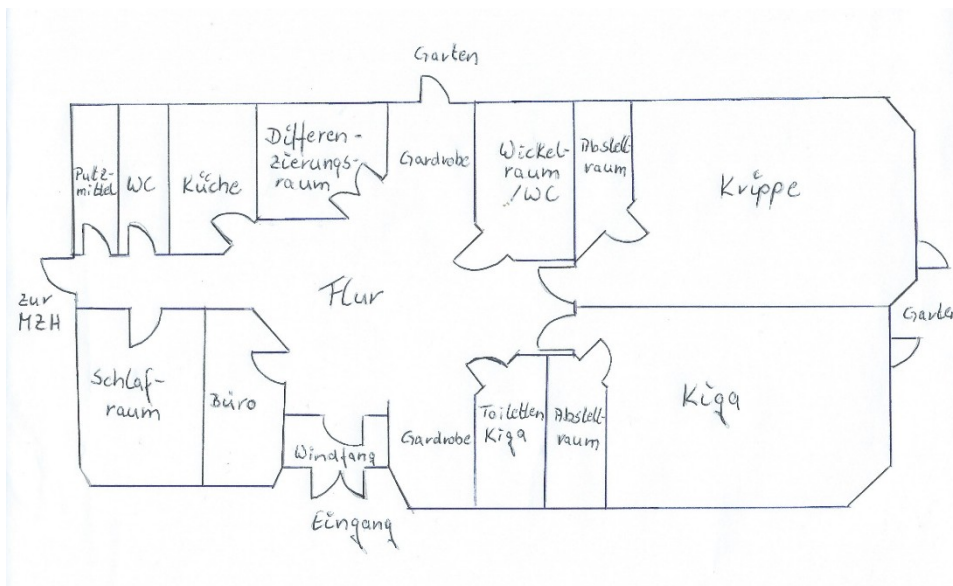 Garten
Putz-
mittel
WC
Küche
Differen-
zierungs-
raum
Gardrobe
Wickel-
raum
/WC
Abstell-
raum
Krippe
zur
MZH
Flur
Garten
Schlaf-
raum
Büro
Windfang
Eingang
Gardrobe
Toiletten
Kiga
Abstell-
raum
Kiga